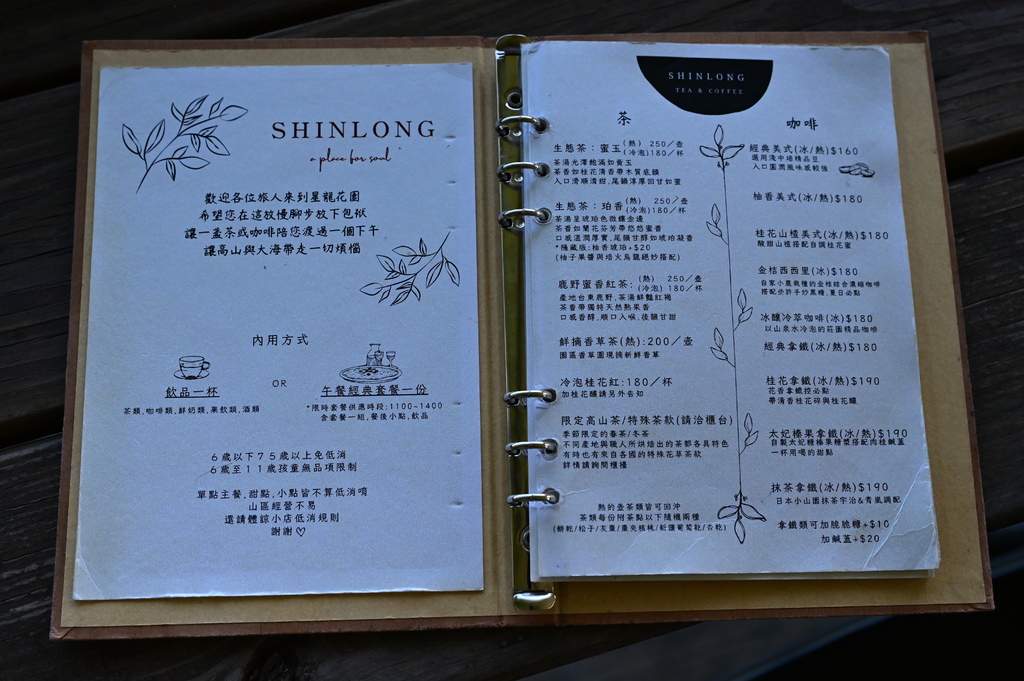 SHINLONG
a place for soul
歡迎各位旅人來到星龍花園
希望您在這放慢腳步放下包袱
讓一盃茶或咖啡陪您渡過一個下午
讓高山與大海帶走一切煩惱
內用方式
飲品一杯
OR
午餐經典套餐一份
茶類,咖啡類,鮮奶類,果飲類,酒類
*限時套餐供應時段:1100~1400
含套餐一組,餐後小點,飲品
6歲以下75歲以上免低消
6歲至11歲孩童無品項限制
單點主餐,甜點,小點皆不算低消唷
山區經營不易
還請體諒小店低消規則
謝謝♡
SHINLONG
TEA & COFFEE
茶
生態茶:蜜玉(熱) 250/壺
(冷泡)180/杯
茶湯光澤飽滿如黃玉
茶香如桂花清香帶木質底韻
入口滑順清甜,尾韻淳厚回甘如蜜
生態茶:珀香(熱) 250/壺
(冷泡)180/杯
茶湯呈琥珀色微鑲金邊
茶香如蘭花芬芳帶悠悠蜜香
口感溫潤厚實,尾韻甘醇如琥珀凝香
*隱藏版:柚香琥珀+$20
(柚子果醬與焙火烏龍絕妙搭配)
鹿野蜜香紅茶:(熱) 250/壺
(冷泡)180/杯
產地台東鹿野,茶湯鮮豔紅褐
茶香帶獨特天然熟果香
口感香醇,順口入喉,後韻甘甜
鮮摘香草茶(熱):200/壺
園區香草園現摘新鮮香草
冷泡桂花紅:180/杯
加桂花釀請另外告知
限定高山茶/特殊茶款(請洽櫃台)
季節限定的春茶/冬茶
不同產地與職人所烘焙出的茶都各具特色
有時也有來自各國的特殊花草茶款
詳情請詢問櫃檯
熱的壺茶類皆可回沖
茶類每份附茶點以下隨機兩種
咖啡
經典美式(冰/熱)$160
選用淺中焙精品豆
入口圓潤風味感較強
柚香美式(冰/熱)$180
桂花山楂美式(冰/熱)$180
酸甜山楂搭配自調桂花蜜
金桔西西里(冰)$180
自家小農栽種的金桔綜合濃縮咖啡
搭配些許手炒黑糖,夏日必點
冰釀冷萃咖啡(冰)$180
以山泉水冷泡的莊園精品咖啡
經典拿鐵(冰/熱)$180
桂花拿鐵(冰/熱)$190
花香拿鐵控必點
帶清香桂花碎與桂花釀
太妃榛果拿鐵(冰/熱)$190
自製太妃糖榛果糖漿搭配肉桂鹹蓋
一杯用喝的甜點
抹茶拿鐵(冰/熱)$190
日本小山園抹茶宇治&青嵐調配
拿鐵類可加脆脆糖+$10
加鹹蓋+$20